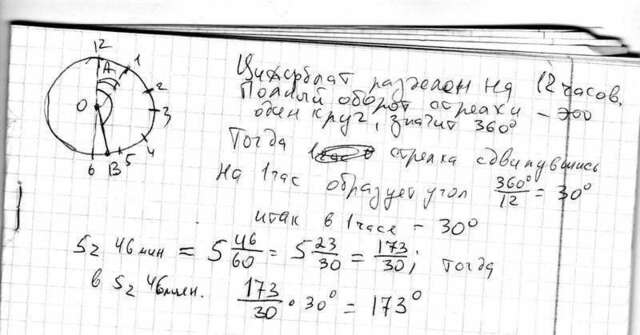 12
1
A
2
O
3
4
5
B
6
Циферблат разделён на 12 часов.
Полный оборот стрелки – это
один круг, значит 360°
Тогда стрелка сдвинувшись
на 1 час образует угол 360°/12 = 30°
итак в 1 часе – 30°
5г 46 мин = 5 46/60 = 5 23/30 = 173/30; тогда
в 5г 46 мин. 173/30 · 30° = 173°